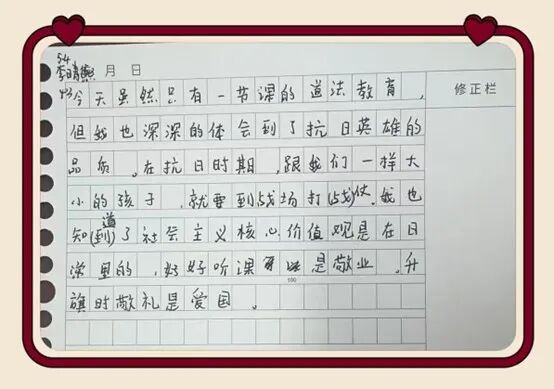 54
月 日
修正栏
今天虽然只有一节课的道法教育，
但我也深深的体会到了抗日英雄的
品质。在抗日时期，跟我们一样大
小的孩子，就要到战场打(战)仗。我也
知(到)道了社会主义核心价值观是在日
常里的，好好听课 是敬业，升
100
旗时敬礼是爱国。